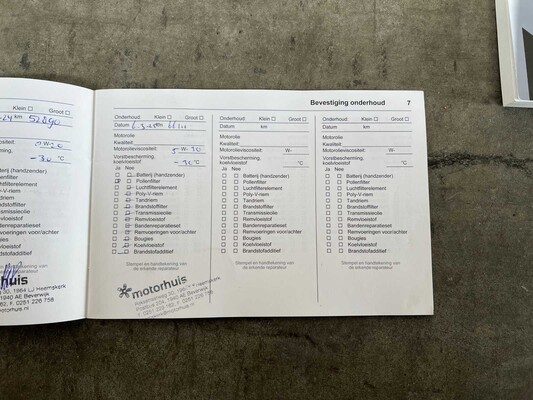 Bevestiging onderhoud 7
Klein Groot
km 52890
-30 °C
Batterij (handzender)
Pollenfilter
Luchtfilterelement
Poly-V-riem
Tandriem
Brandstoffilter
Transmissieolie
Remvloeistof
Bandenreparatieset
Remvoeringen voor/achter
Bougies
Koelvloeistof
Brandstofadditief
Stempel en handtekening van
de erkende reparateur
huis
Heemskerk
1940 AE Beverwijk
Onderhoud: Klein Groot
Datum km
Motorolie
Kwaliteit:
Motorolieviscositeit: 5 W- 30
Vorstbescherming,
koelvloeistof -30 °C
Ja Nee
Batterij (handzender)
Pollenfilter
Luchtfilterelement
Poly-V-riem
Tandriem
Brandstoffilter
Transmissieolie
Remvloeistof
Bandenreparatieset
Remvoeringen voor/achter
Bougies
Koelvloeistof
Brandstofadditief
Stempel en handtekening van
de erkende reparateur
motorhuis
1940 AE Beverwijk
Onderhoud: Klein Groot
Datum km
Motorolie
Kwaliteit:
Motorolieviscositeit: W-
Vorstbescherming,
koelvloeistof °C
Ja Nee
Batterij (handzender)
Pollenfilter
Luchtfilterelement
Poly-V-riem
Tandriem
Brandstoffilter
Transmissieolie
Remvloeistof
Bandenreparatieset
Remvoeringen voor/achter
Bougies
Koelvloeistof
Brandstofadditief
Stempel en handtekening van
de erkende reparateur
Onderhoud: Klein Groot
Datum km
Motorolie
Kwaliteit:
Motorolieviscositeit: W-
Vorstbescherming,
koelvloeistof °C
Ja Nee
Batterij (handzender)
Pollenfilter
Luchtfilterelement
Poly-V-riem
Tandriem
Brandstoffilter
Transmissieolie
Remvloeistof
Bandenreparatieset
Remvoeringen voor/achter
Bougies
Koelvloeistof
Brandstofadditief
Stempel en handtekening van
de erkende reparateur